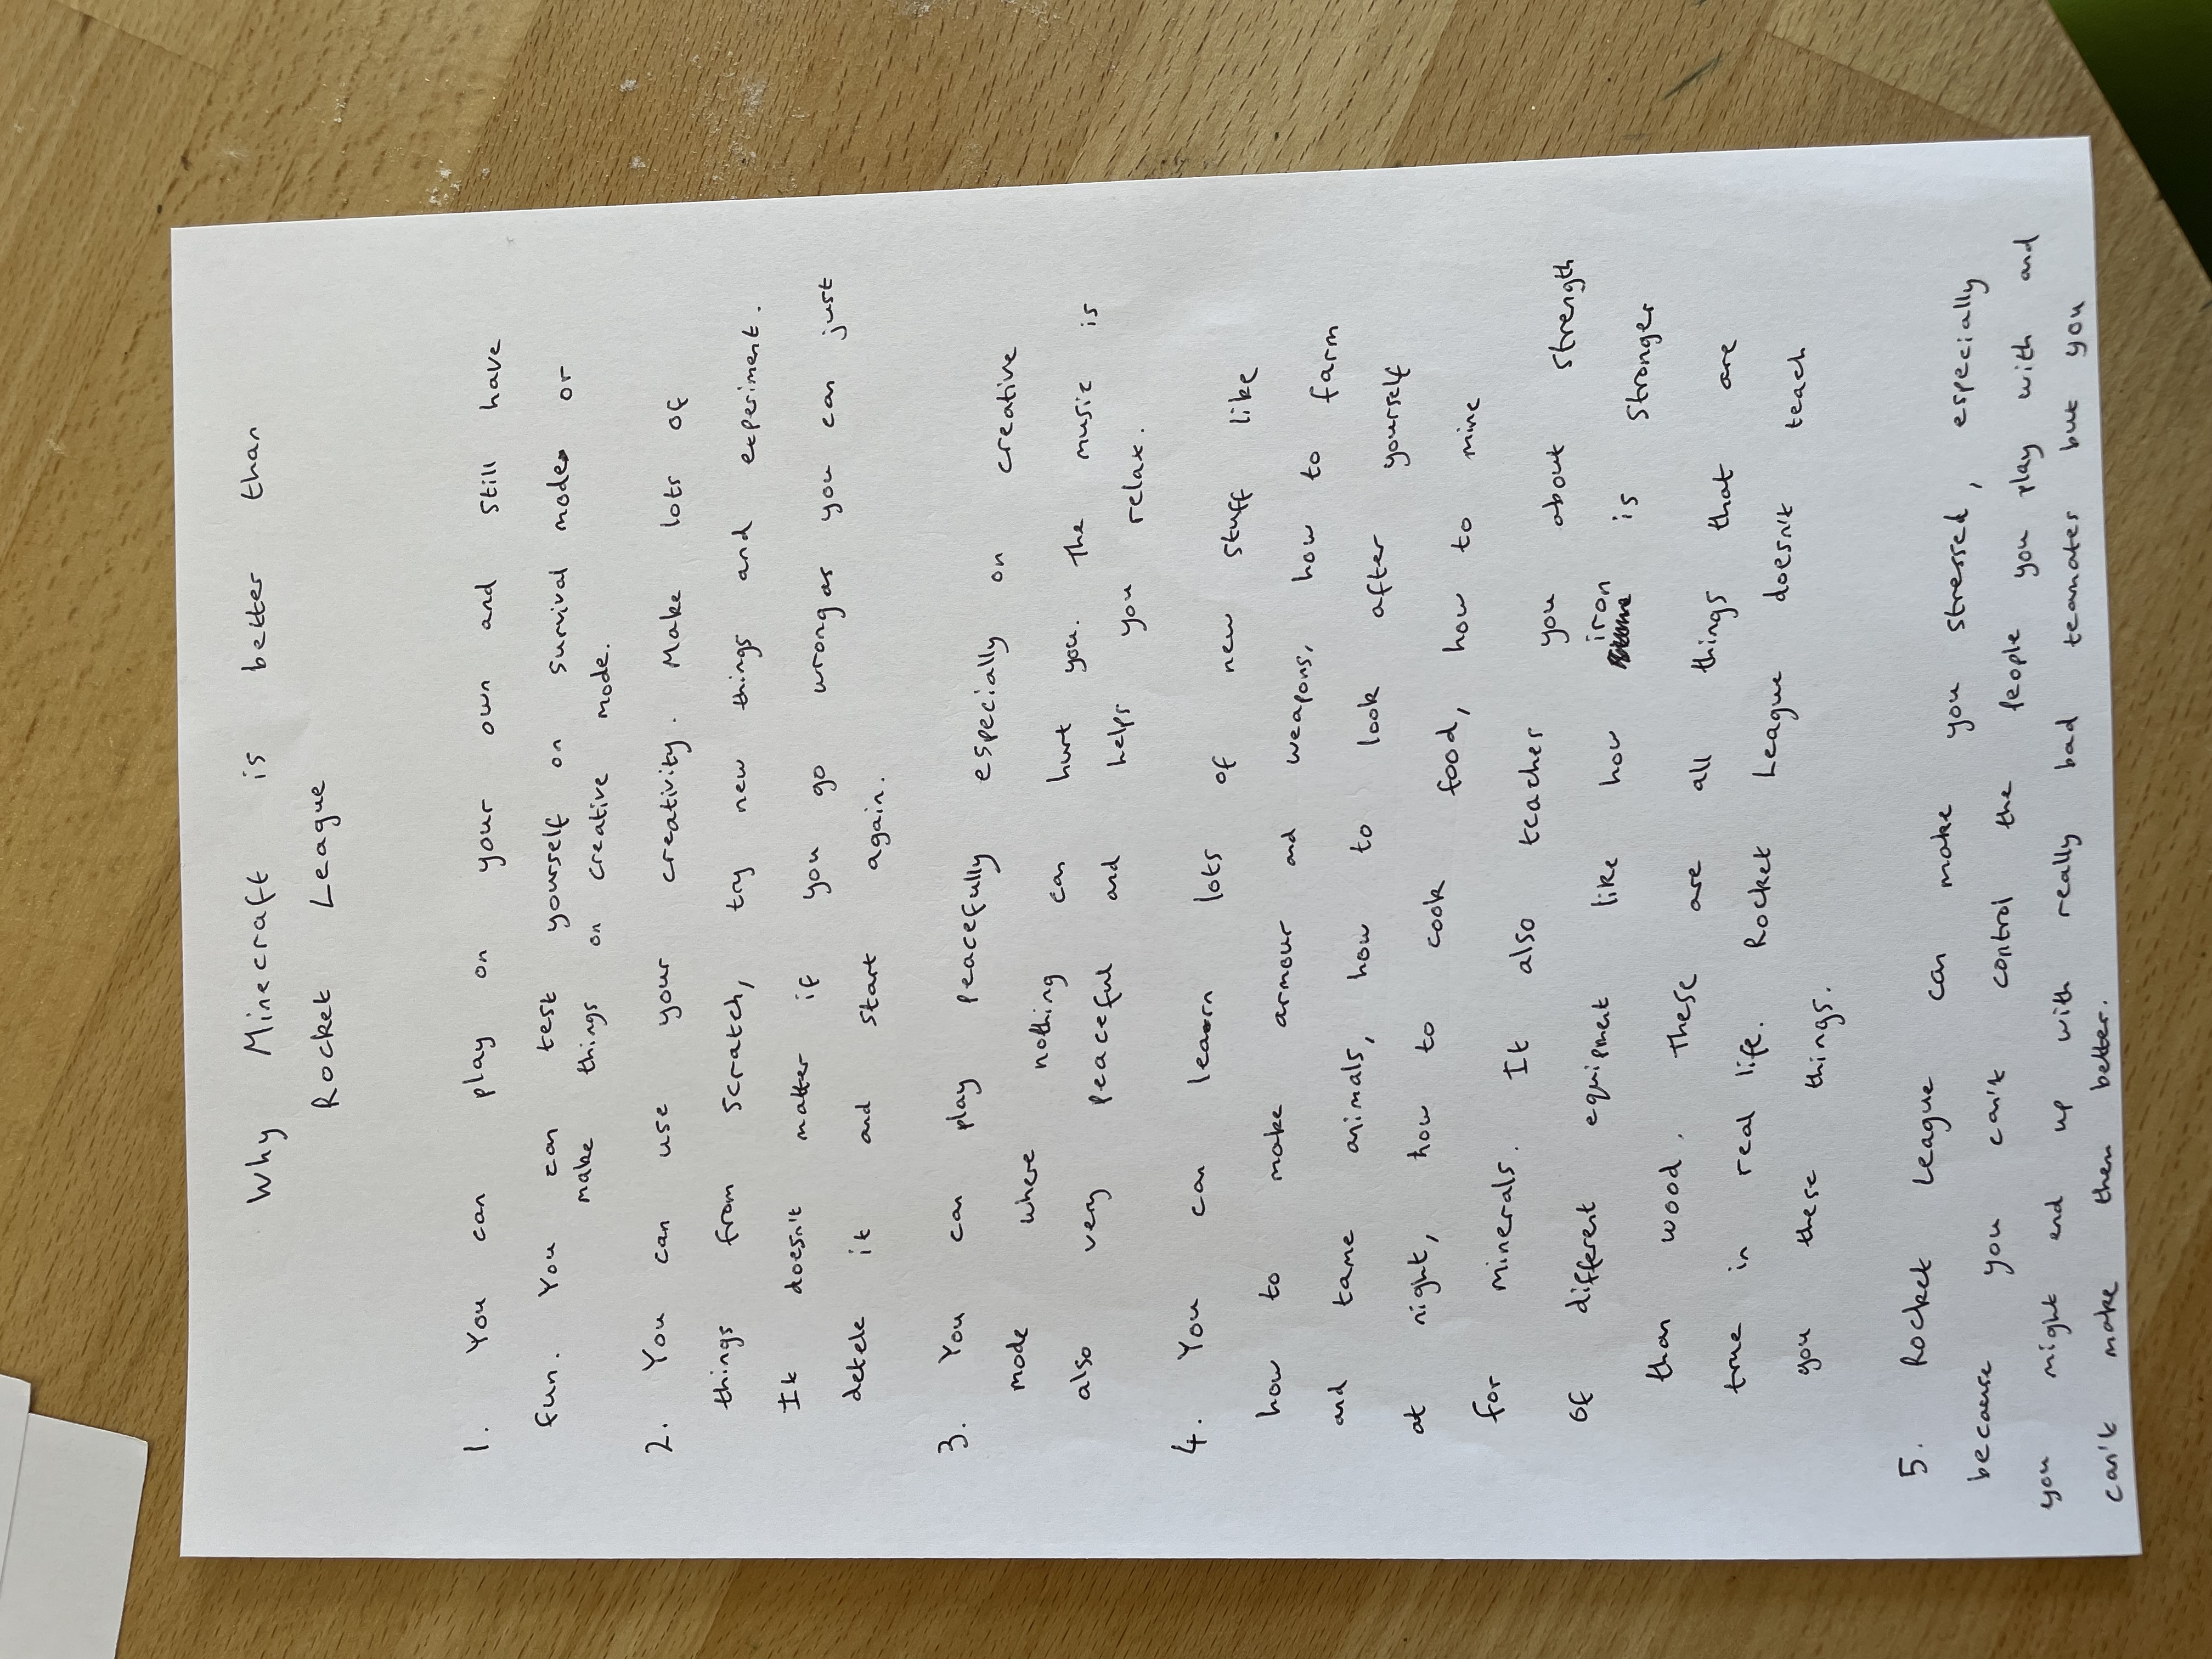 Why Minecraft is better than
Rocket League
1. You can play on your own and still have
fun. You can test yourself on survival mode or
make things on creative mode.
2. You can use your creativity. Make lots of
things from scratch, try new things and experiment.
It doesn't matter if you go wrong as you can just
delete it and start again.
3. You can play peacefully especially on creative
mode where nothing can hurt you. The music is
also very peaceful and helps you relax.
4. You can learn lots of new stuff like
how to make armour and weapons, how to farm
and tame animals, how to look after yourself
at night, how to cook food, how to mine
for minerals. It also teaches you about strength
of different equipment like how iron is stronger
than wood. These are all things that are
true in real life. Rocket League doesn't teach
you these things.
5. Rocket League can make you stressed, especially
because you can't control the people you play with and
you might end up with really bad teamates but you
can't make them better.